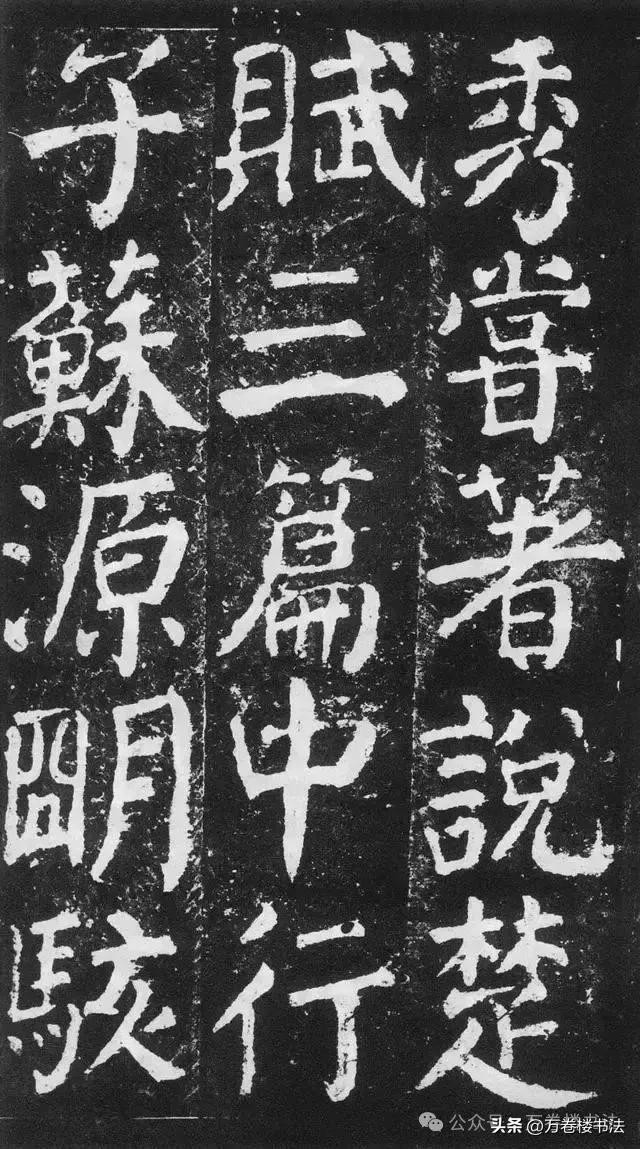 秀嘗著說楚
賦三篇中行
子蘇源朙駭
公众号·万卷楼书法
头条@万卷楼书法